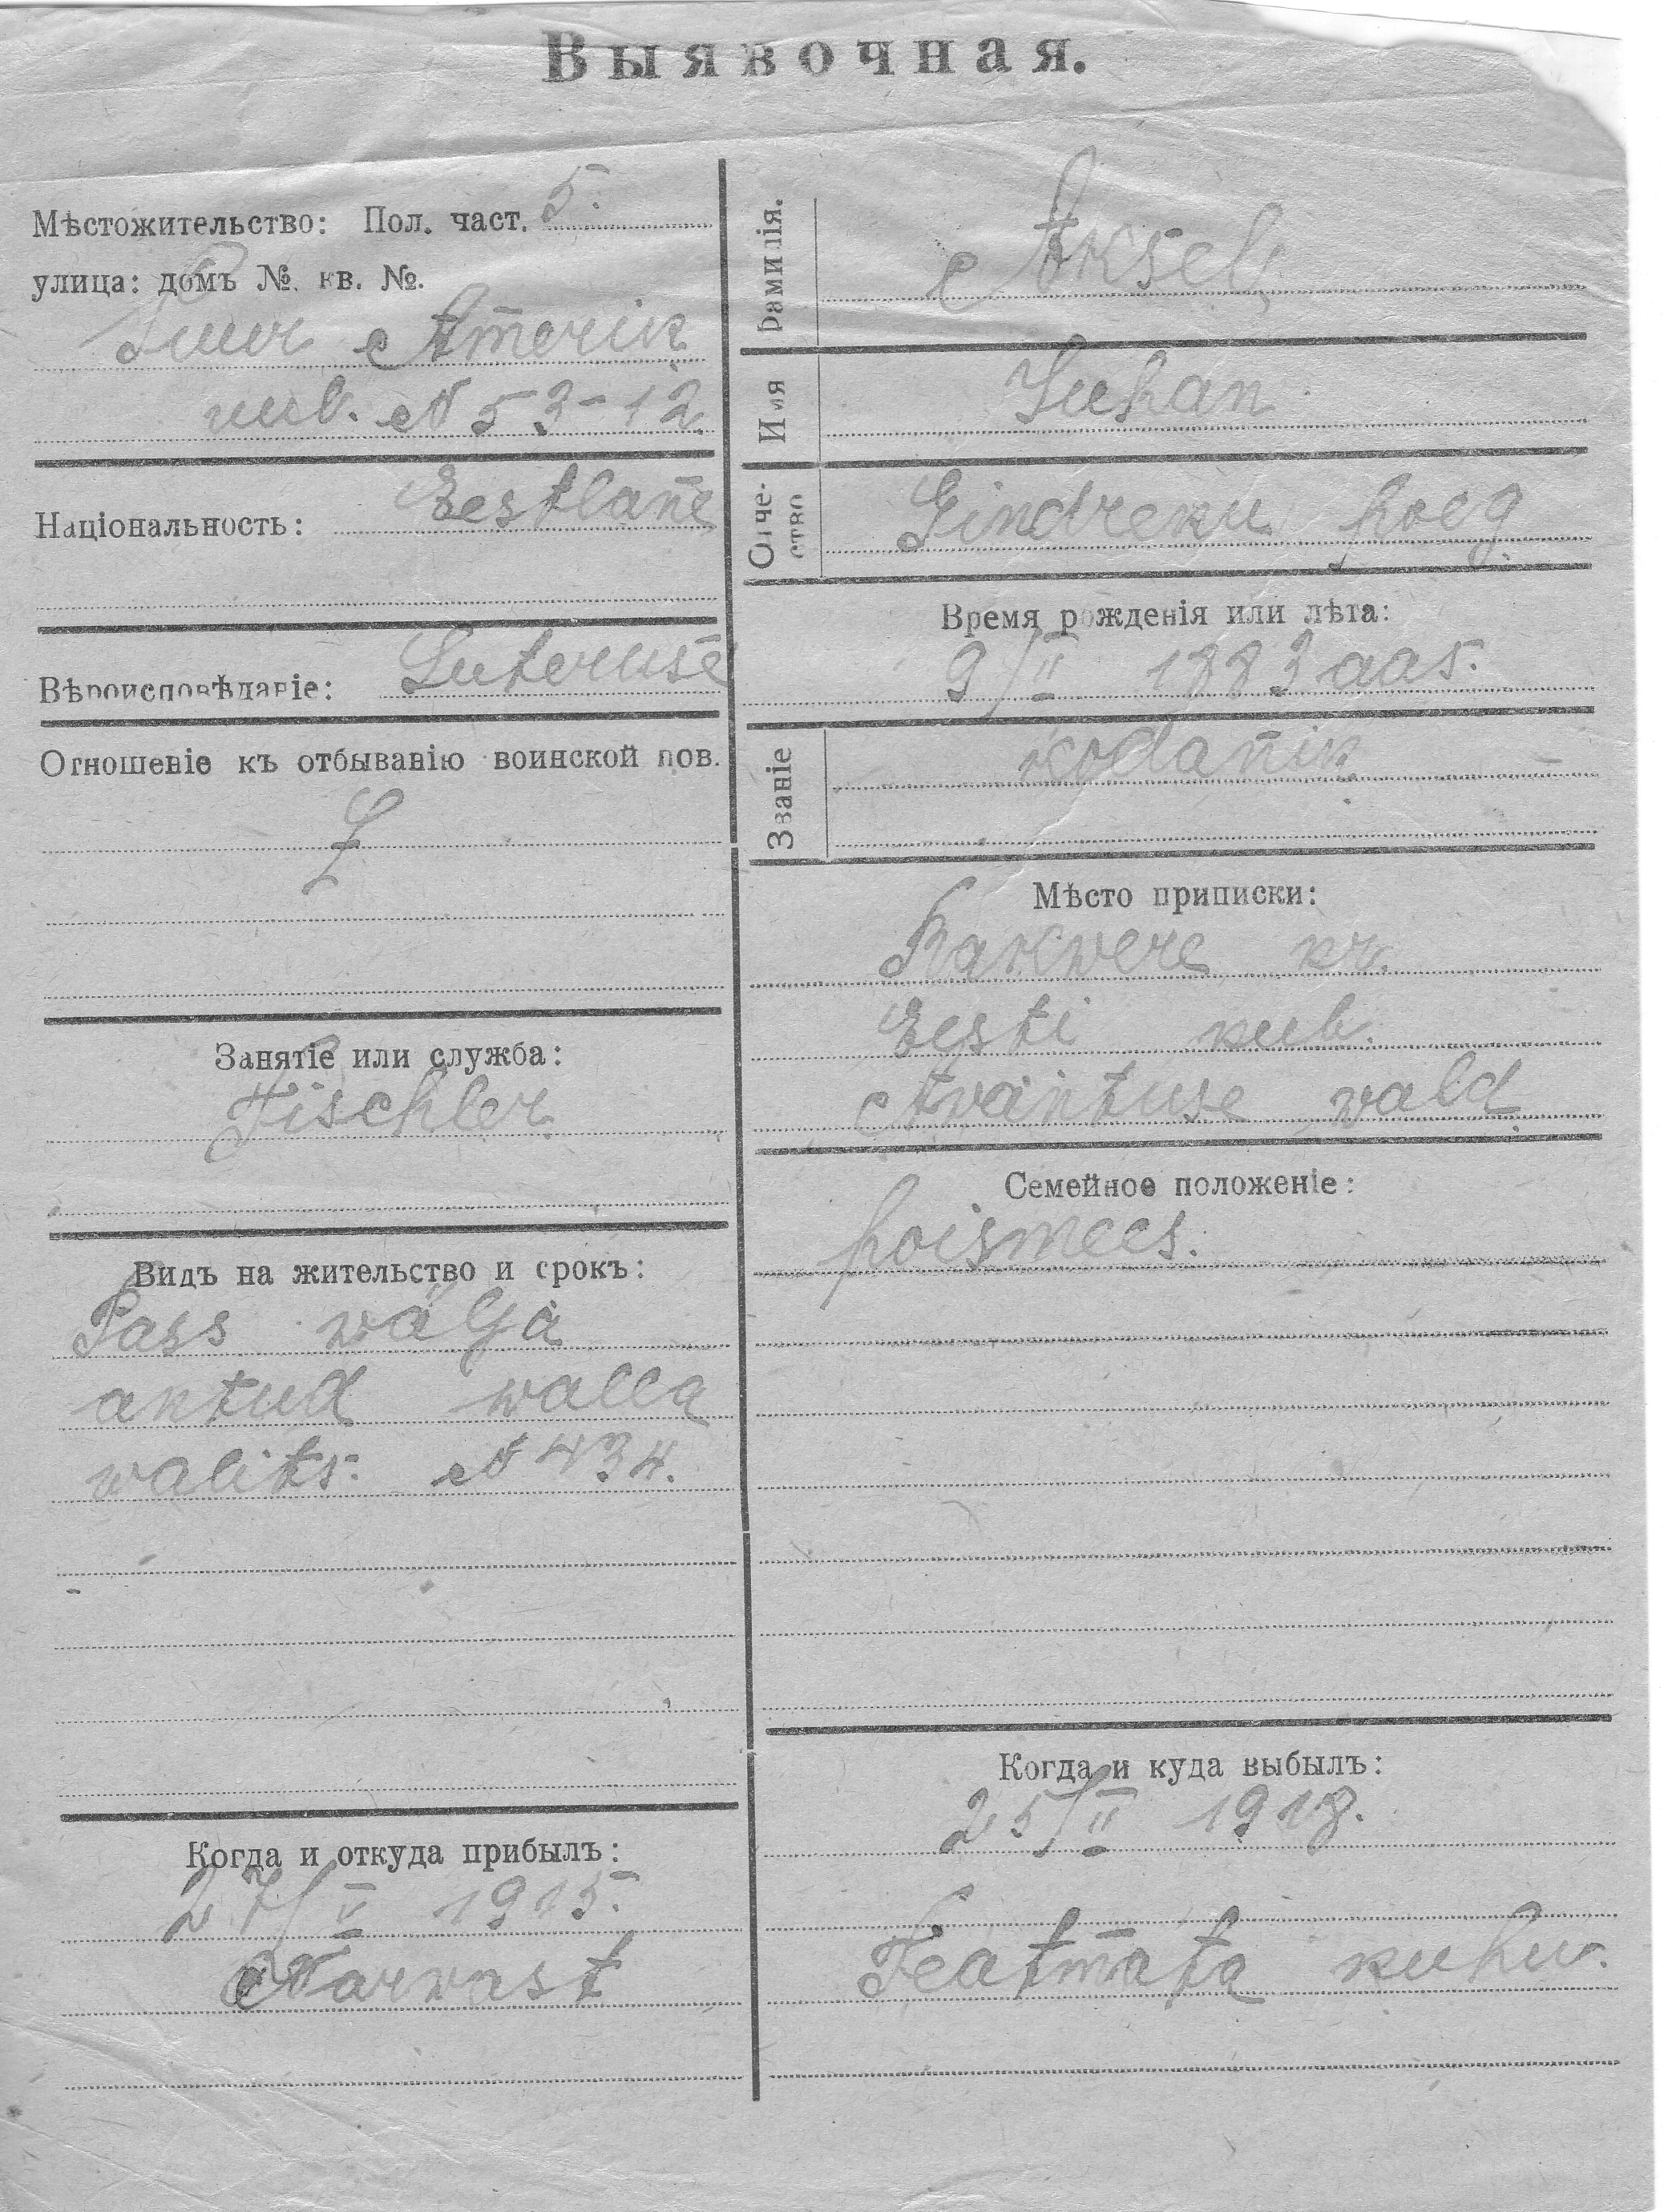 Выявочная.
Мѣстожительство: Пол. част. 5.
улица: домъ №. кв. №.
Suur Amerik
uul. N 53-12.
Національность: Eestlane
Вѣроисповѣданіе: Luteruse
Отношеніе къ отбыванію воинской пов.
Занятіе или служба:
Tischler.
Видъ на жительство и срокъ:
Pass wälja
antud walla
walits. N 434.
Когда и откуда прибылъ:
27/V 1915.
Narwast
Фамилія. Aksel,
Имя Juhan
Отчество Hindreku poeg.
Время рожденія или лѣта:
9/II 1883 aas.
Званіе kodanik
Мѣсто приписки:
Rakwere kr.
Eesti kub.
Awantuse wald
Семейное положеніе:
poismees.
Когда и куда выбылъ:
25/II 1918.
Teatmata kuhu.